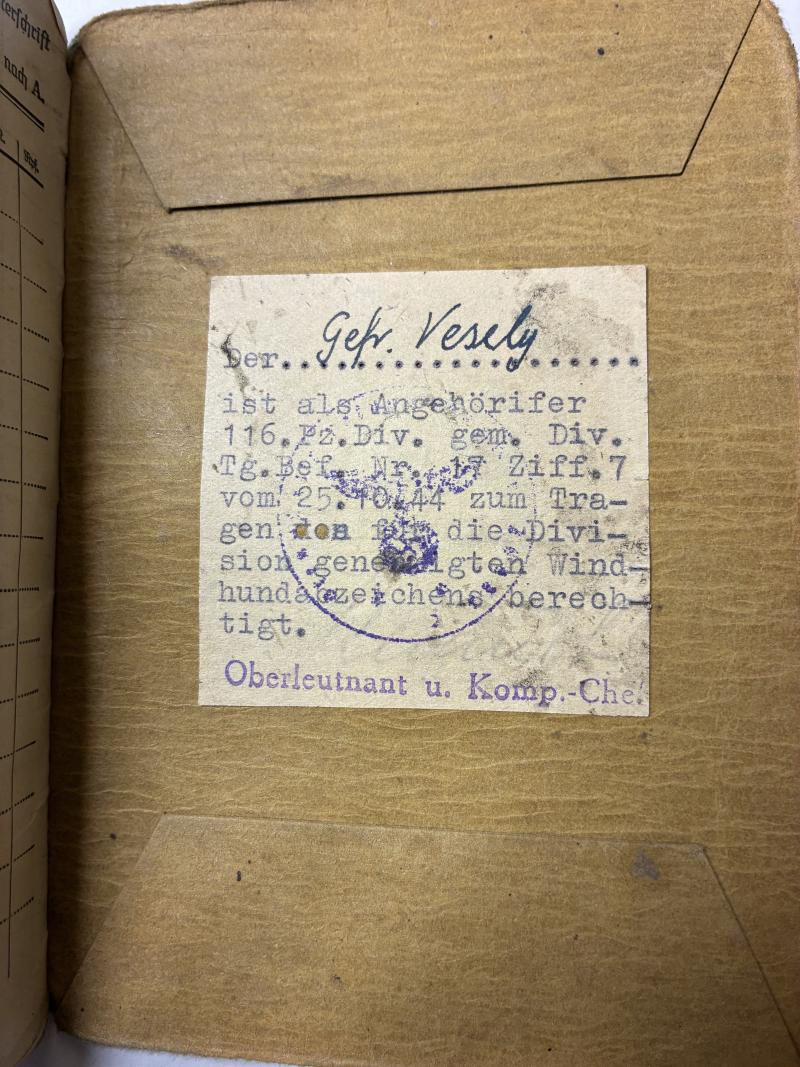 terschrift
nach A.
Der. Gefr. Vesely
ist als Angehörifer
116.Pz.Div. gem. Div.
Tg.Bef. Nr. 17 Ziff.7
vom 25.10.44 zum Tra-
gen des für die Divi-
sion genehmigten Wind-
hundabzeichens berech-
tigt.
Oberleutnant u. Komp.-Che.